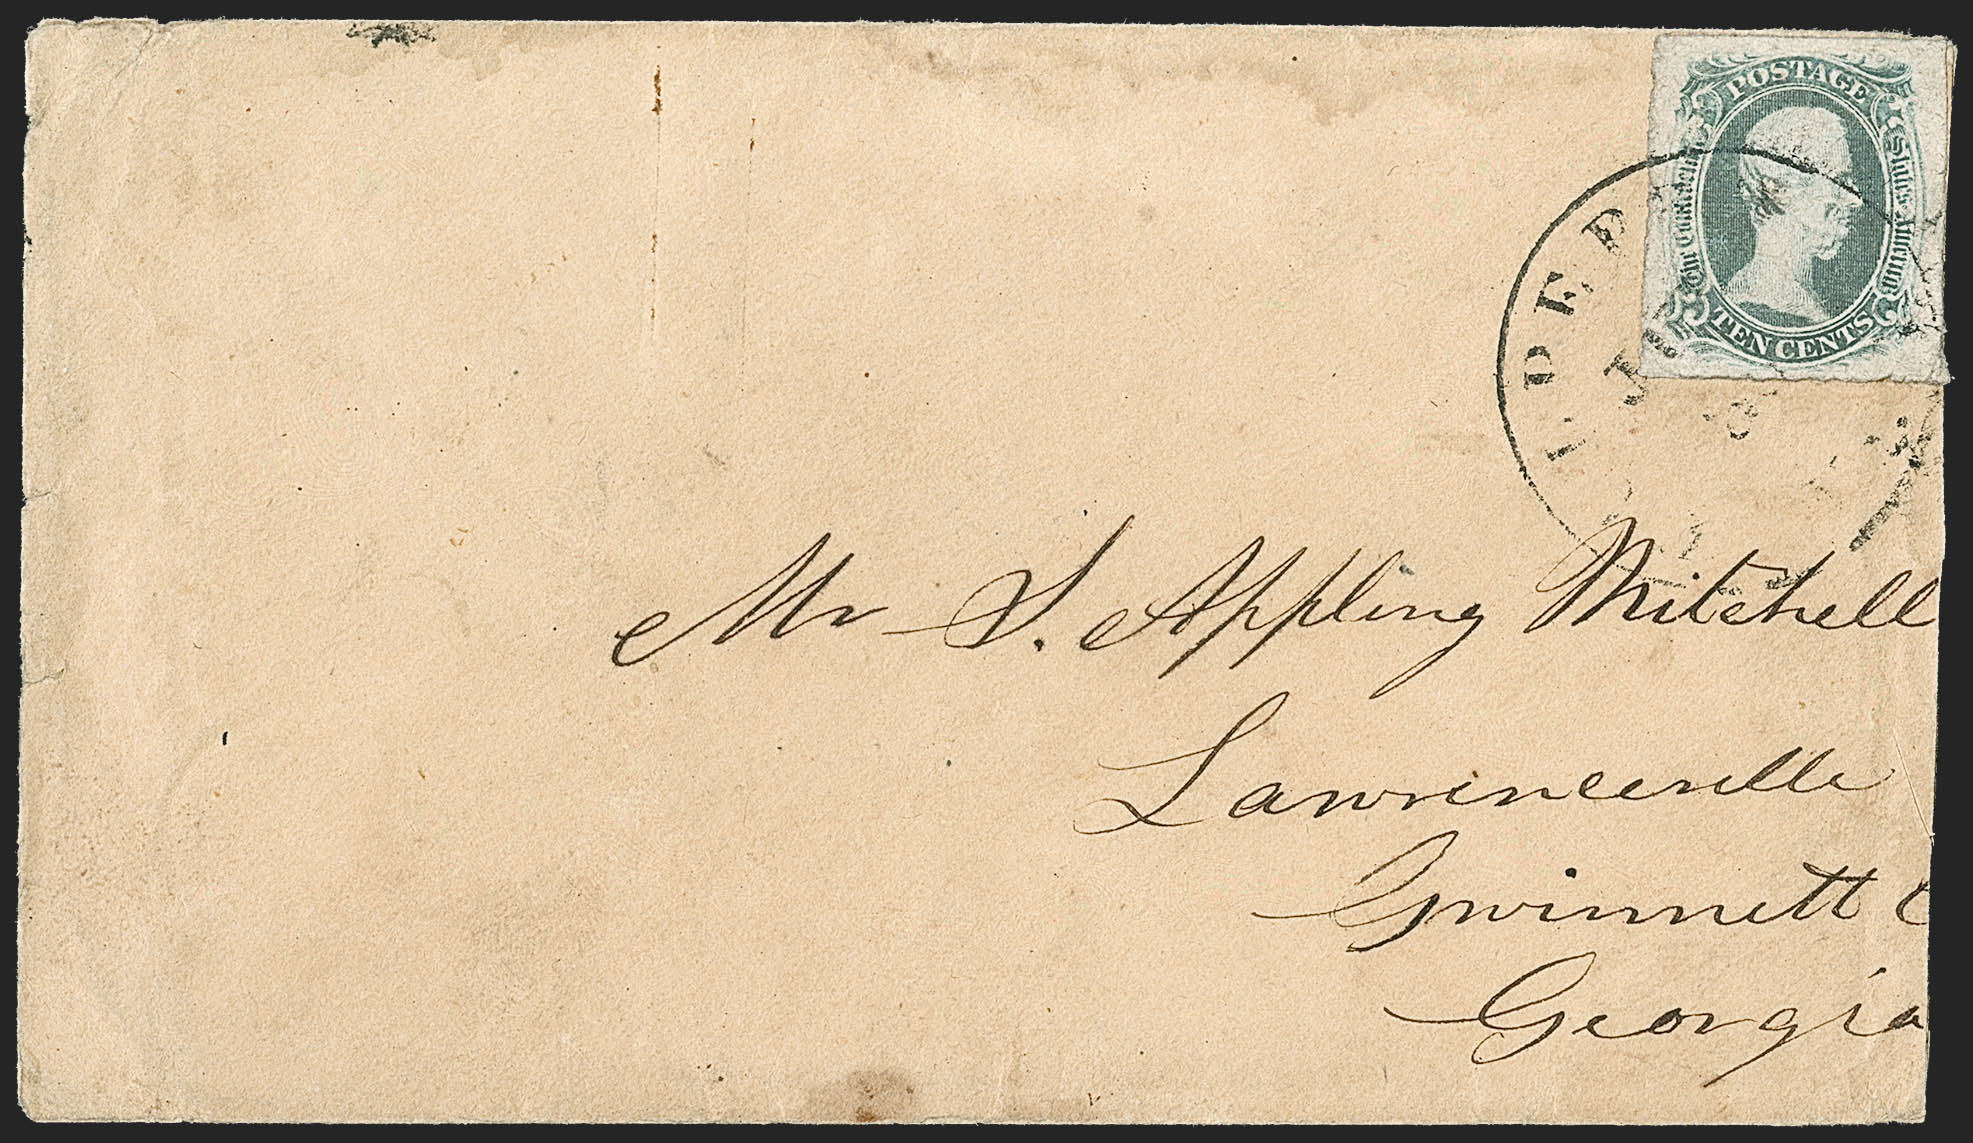 POSTAGE
The Confederate States of America
TEN CENTS
Mr S. Appling Mitchell
Lawrenceville
Gwinnett C
Georgia